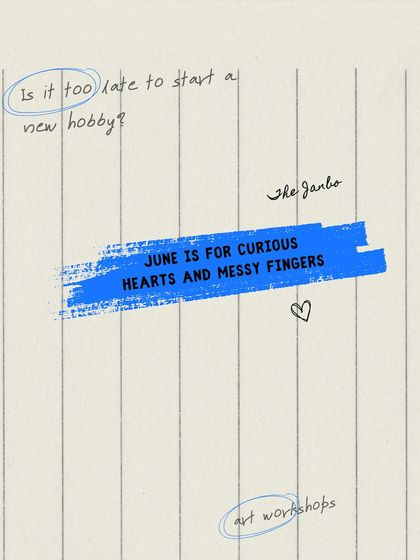 Is it too late to start a
new hobby?
The Janbo
JUNE IS FOR CURIOUS
HEARTS AND MESSY FINGERS
art workshops